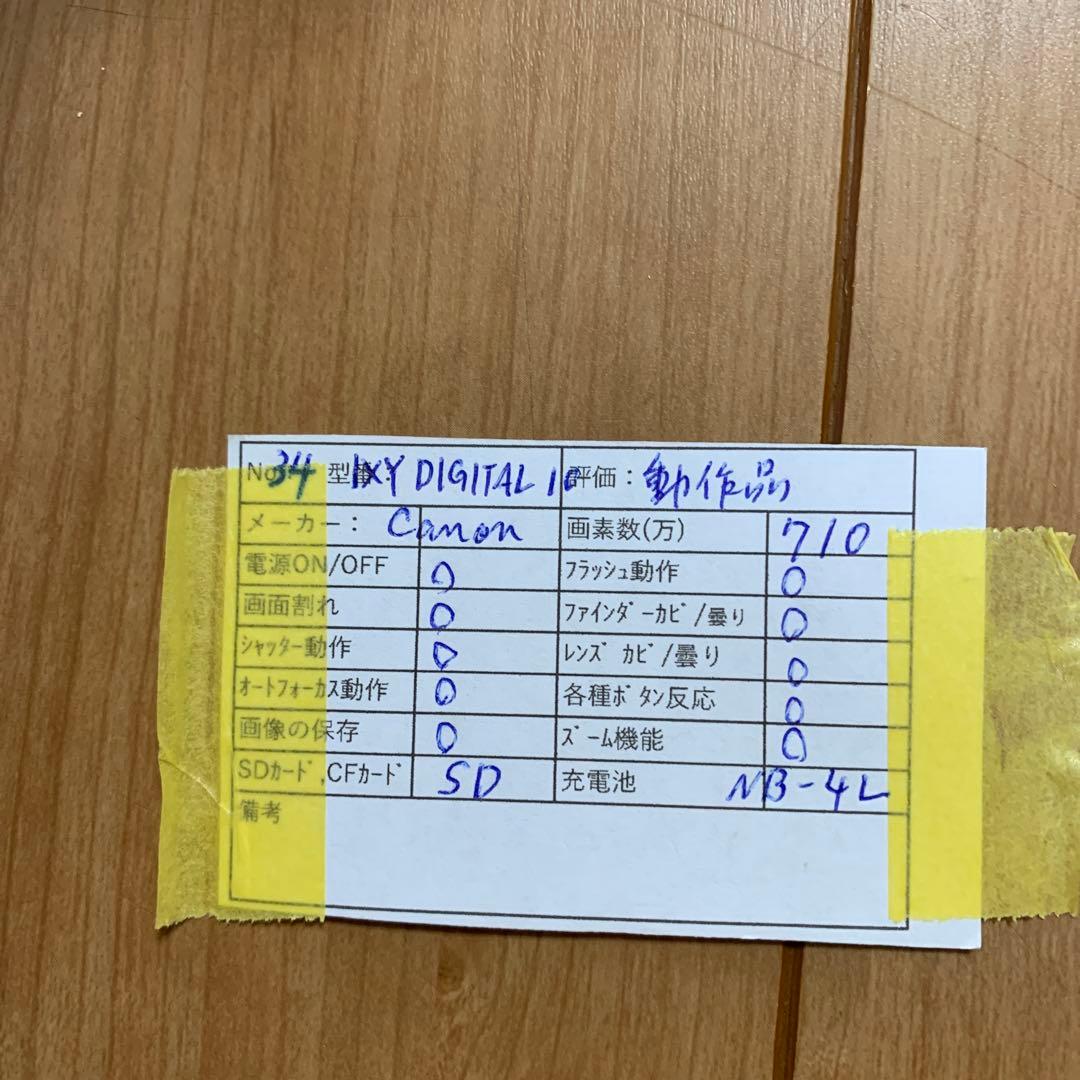 No 34 型番: IXY DIGITAL 10 評価: 動作品
メーカー: Canon 画素数(万) 710
電源ON/OFF O フラッシュ動作 O
画面割れ O ファインダーカビ/曇り O
シャッター動作 O レンズカビ/曇り O
オートフォーカス動作 O 各種ボタン反応 O
画像の保存 O ズーム機能 O
SDカード,CFカード SD 充電池 NB-4L
備考